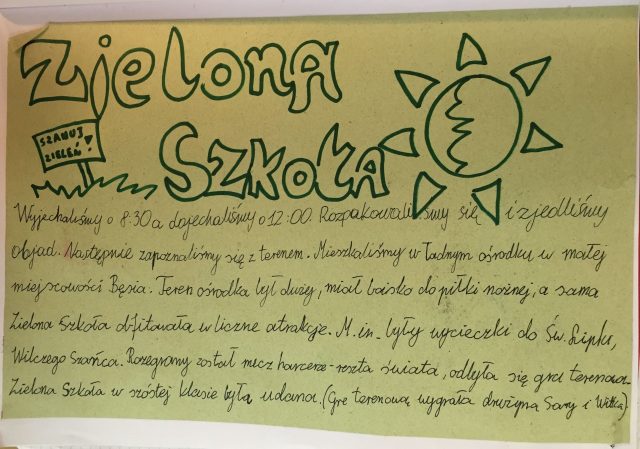 Zielona
Szkoła
SZANUJ
ZIELEŃ!
Wyjechaliśmy o 8:30 a dojechaliśmy o 12:00. Rozpakowaliśmy się i zjedliśmy
objad. Następnie zapoznaliśmy się z terenem. Mieszkaliśmy w ładnym ośrodku w małej
miejscowości Bęsia. Teren ośrodka był duży, miał boisko do piłki nożnej, a sama
Zielona Szkoła obfitowała w liczne atrakcje. M.in. były wycieczki do Św. Lipki,
Wilczego Szańca. Rozegrany został mecz harcerze-reszta świata, odbyła się gra terenowa.
Zielona Szkoła w szóstej klasie była udana. (Grę terenową wygrała drużyna Sary i Witka)